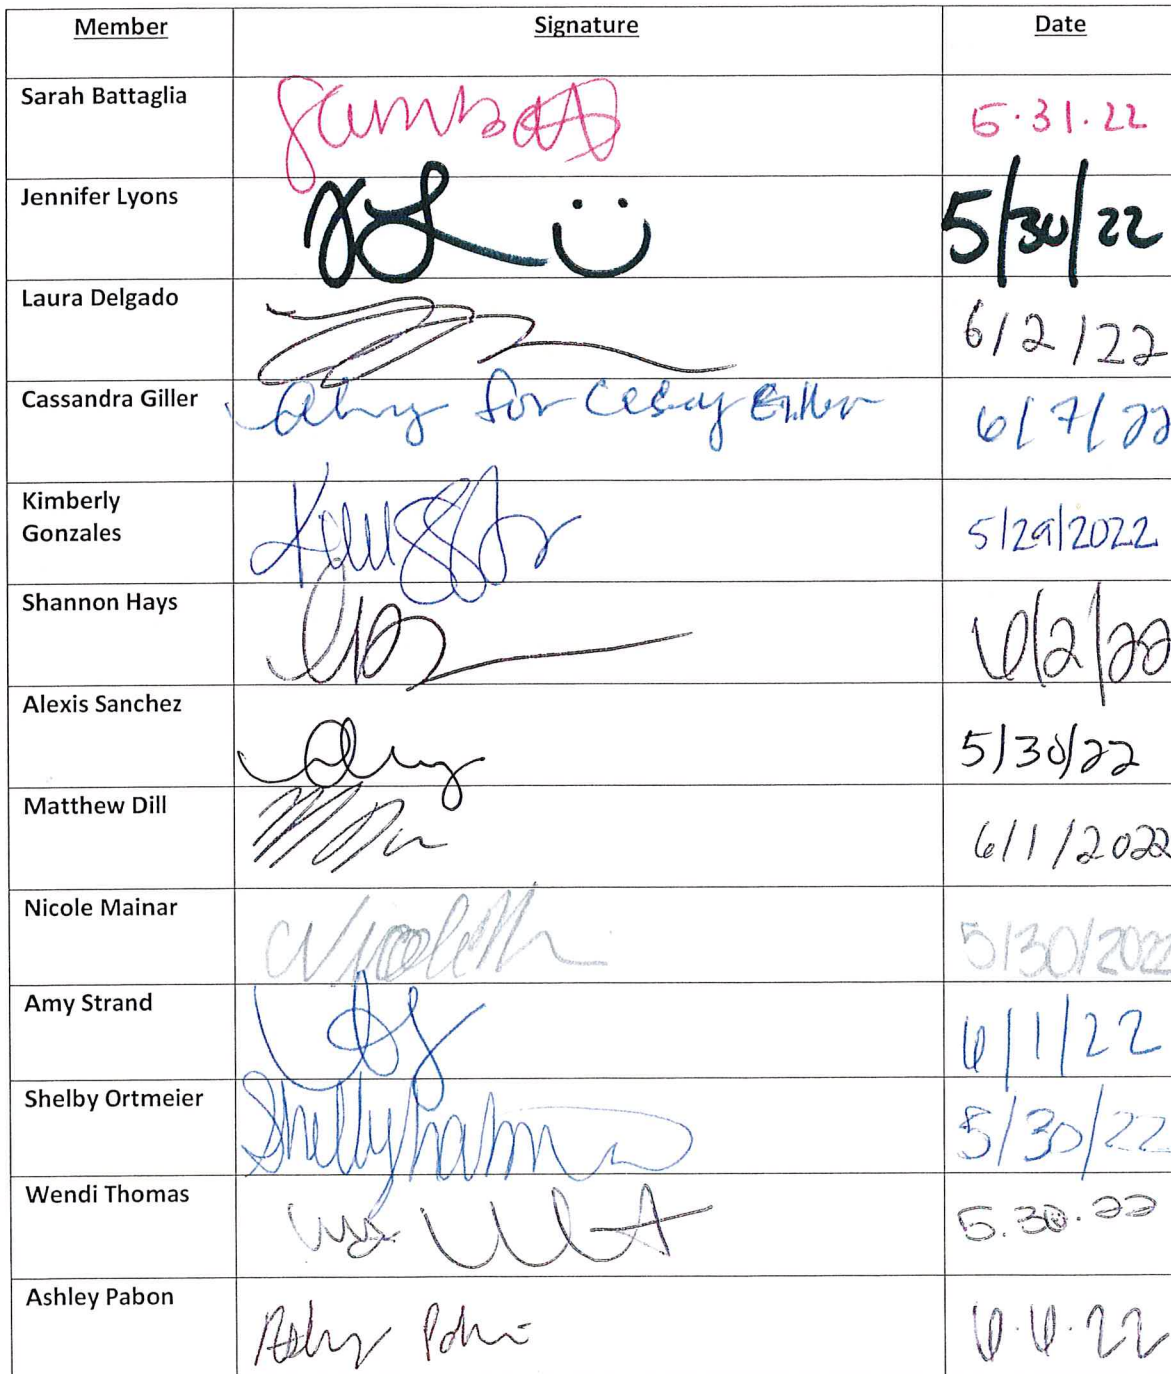 Member Signature Date
Sarah Battaglia 5.31.22
Jennifer Lyons JL 5/30/22
Laura Delgado 6/2/22
Cassandra Giller for Casey Giller 6/7/22
Kimberly
Gonzales 5/29/2022
Shannon Hays 6/2/22
Alexis Sanchez 5/30/22
Matthew Dill 6/1/2022
Nicole Mainar Nicole M 5/30/2022
Amy Strand 6/1/22
Shelby Ortmeier 5/30/22
Wendi Thomas 5.30.22
Ashley Pabon 6.6.22